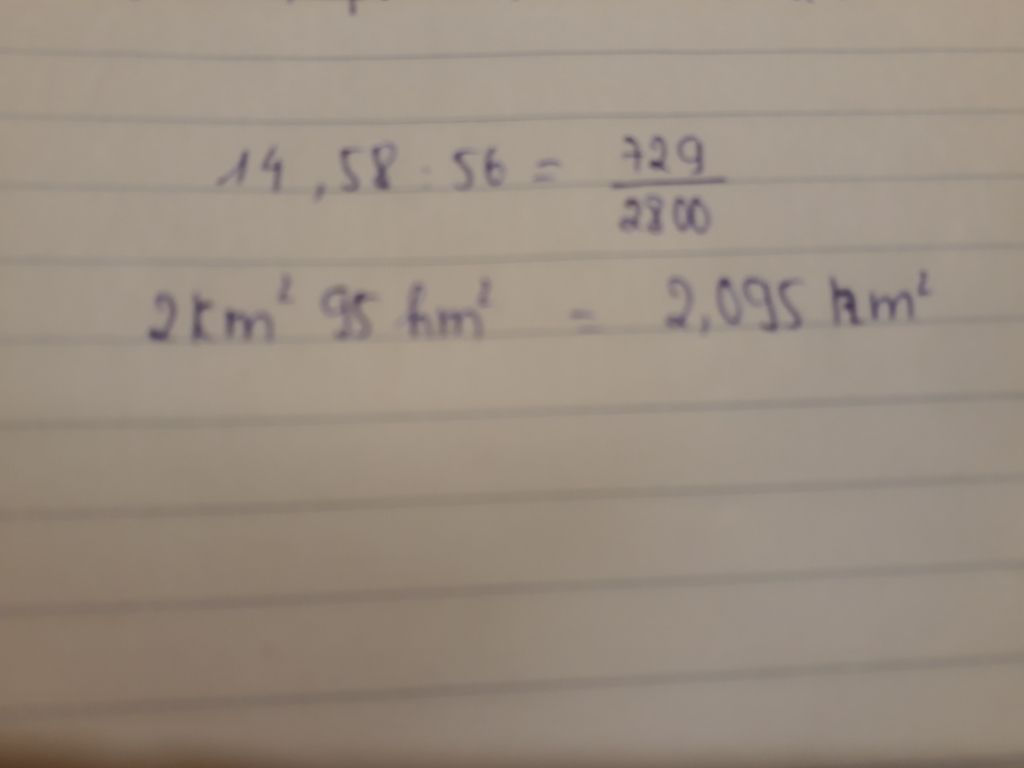 14,58 : 56 = 729/2800
2km² 95 hm² = 2,095 km²